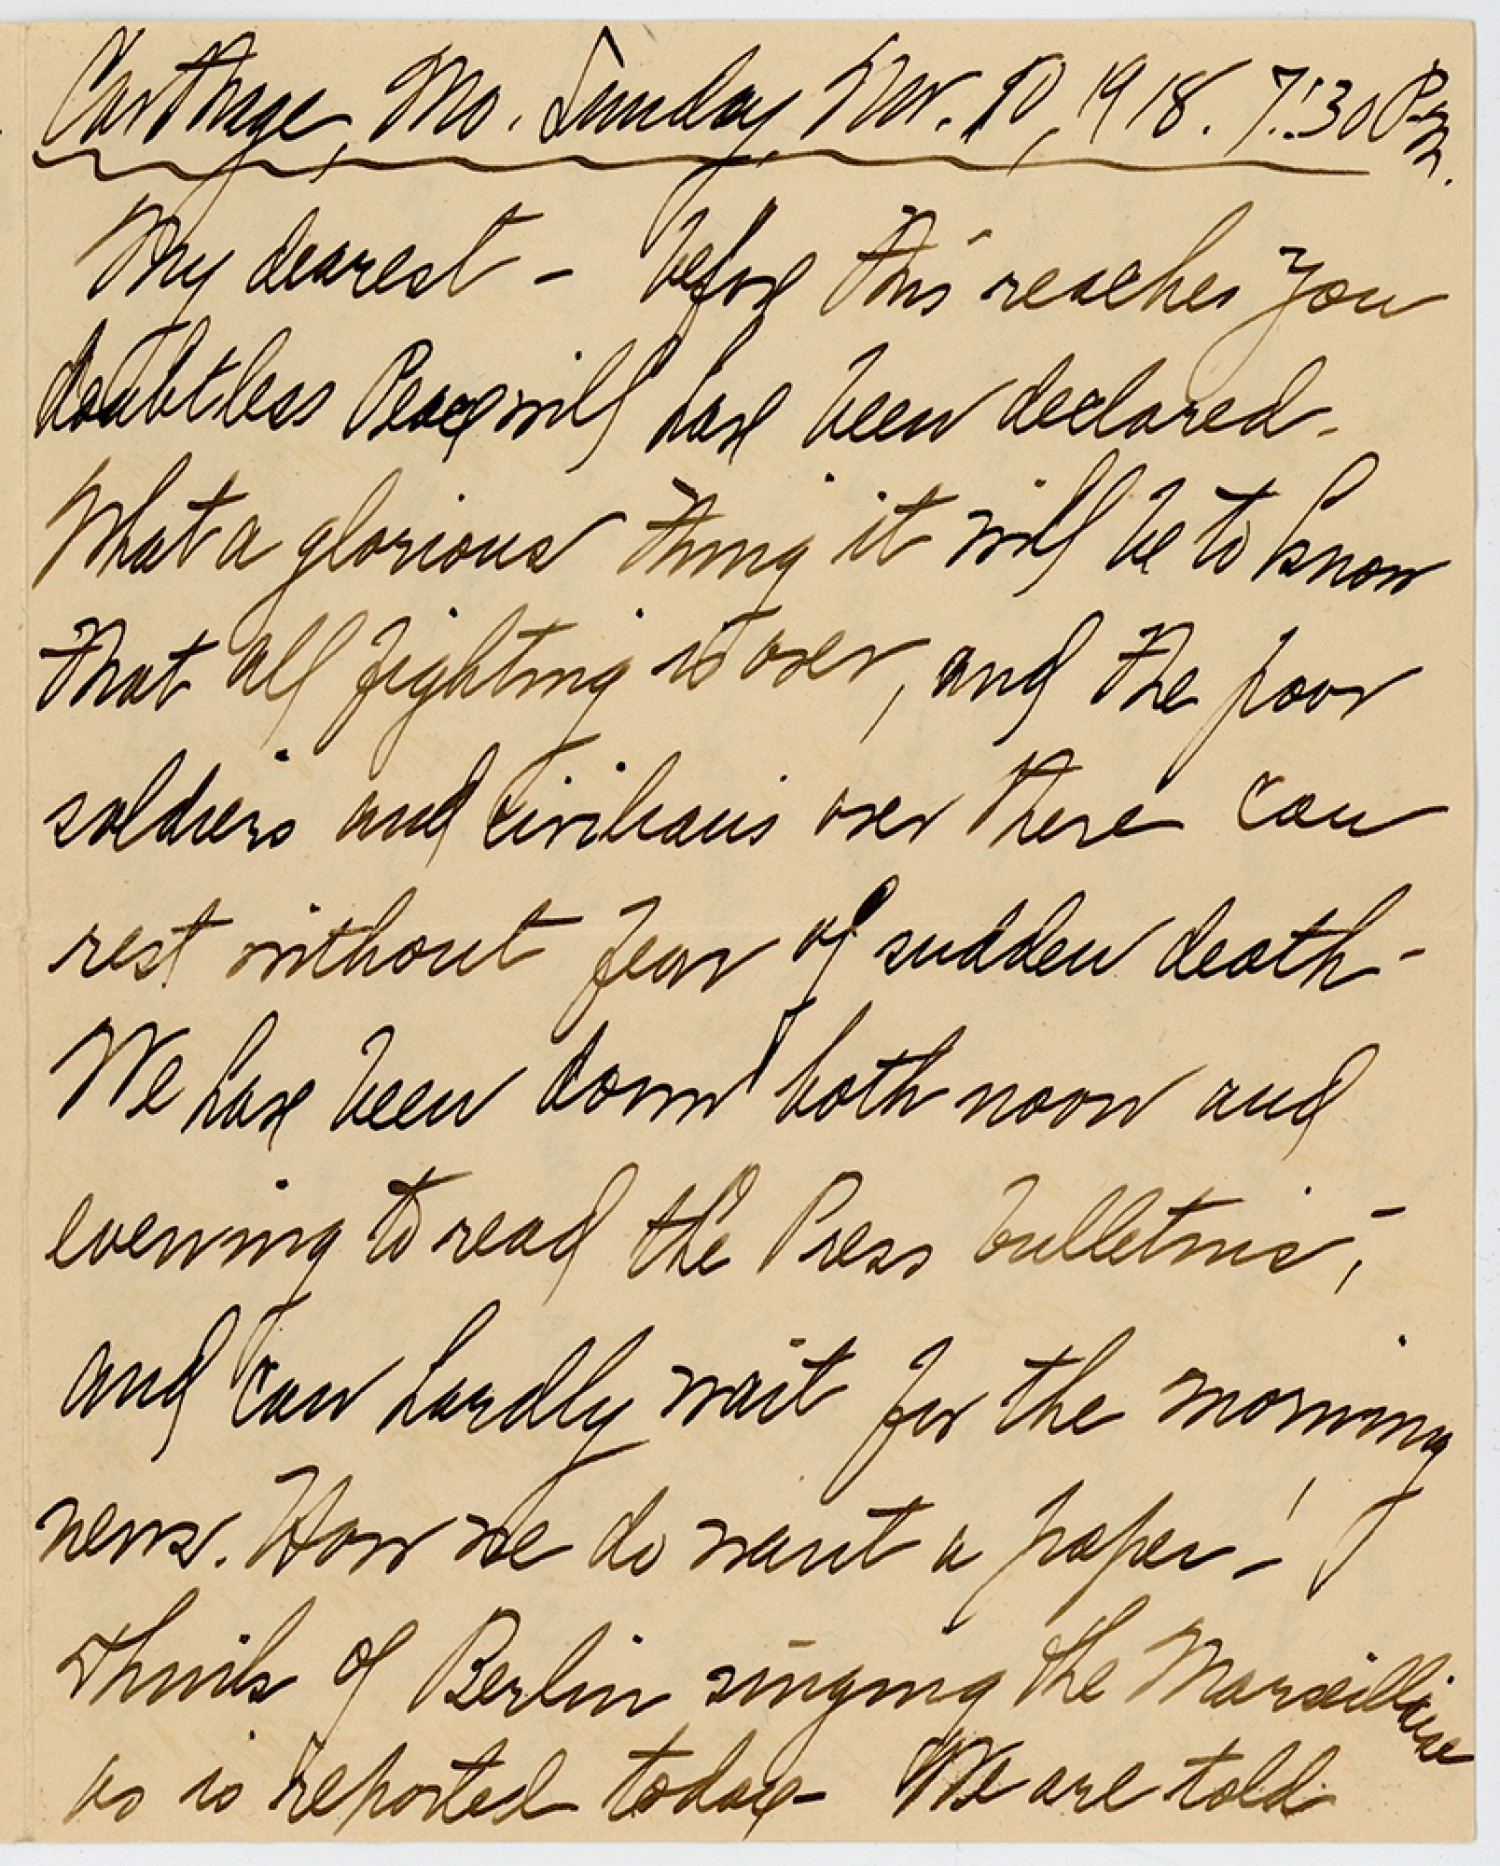 Carthage, Mo. Sunday, Nov. 10, 1918. 7:30 P.m.
My dearest - before this reaches you
doubtless Peace will have been declared -
What a glorious thing it will be to know
that all fighting is over, and the poor
soldiers and civilians over there can
rest without fear of sudden death -
We have been down both noon and
evening to read the Press bulletins, -
and can hardly wait for the morning
news. How we do want a paper - !
Think of Berlin singing the Marseillaise
as is reported today - We are told